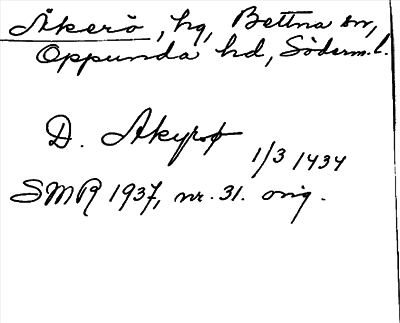 Åkerö, hg, Bettna sn,
Oppunda hd, Söderm. l.
D. Akyrø
1/3 1434
SMR 1937, nr. 31. orig.